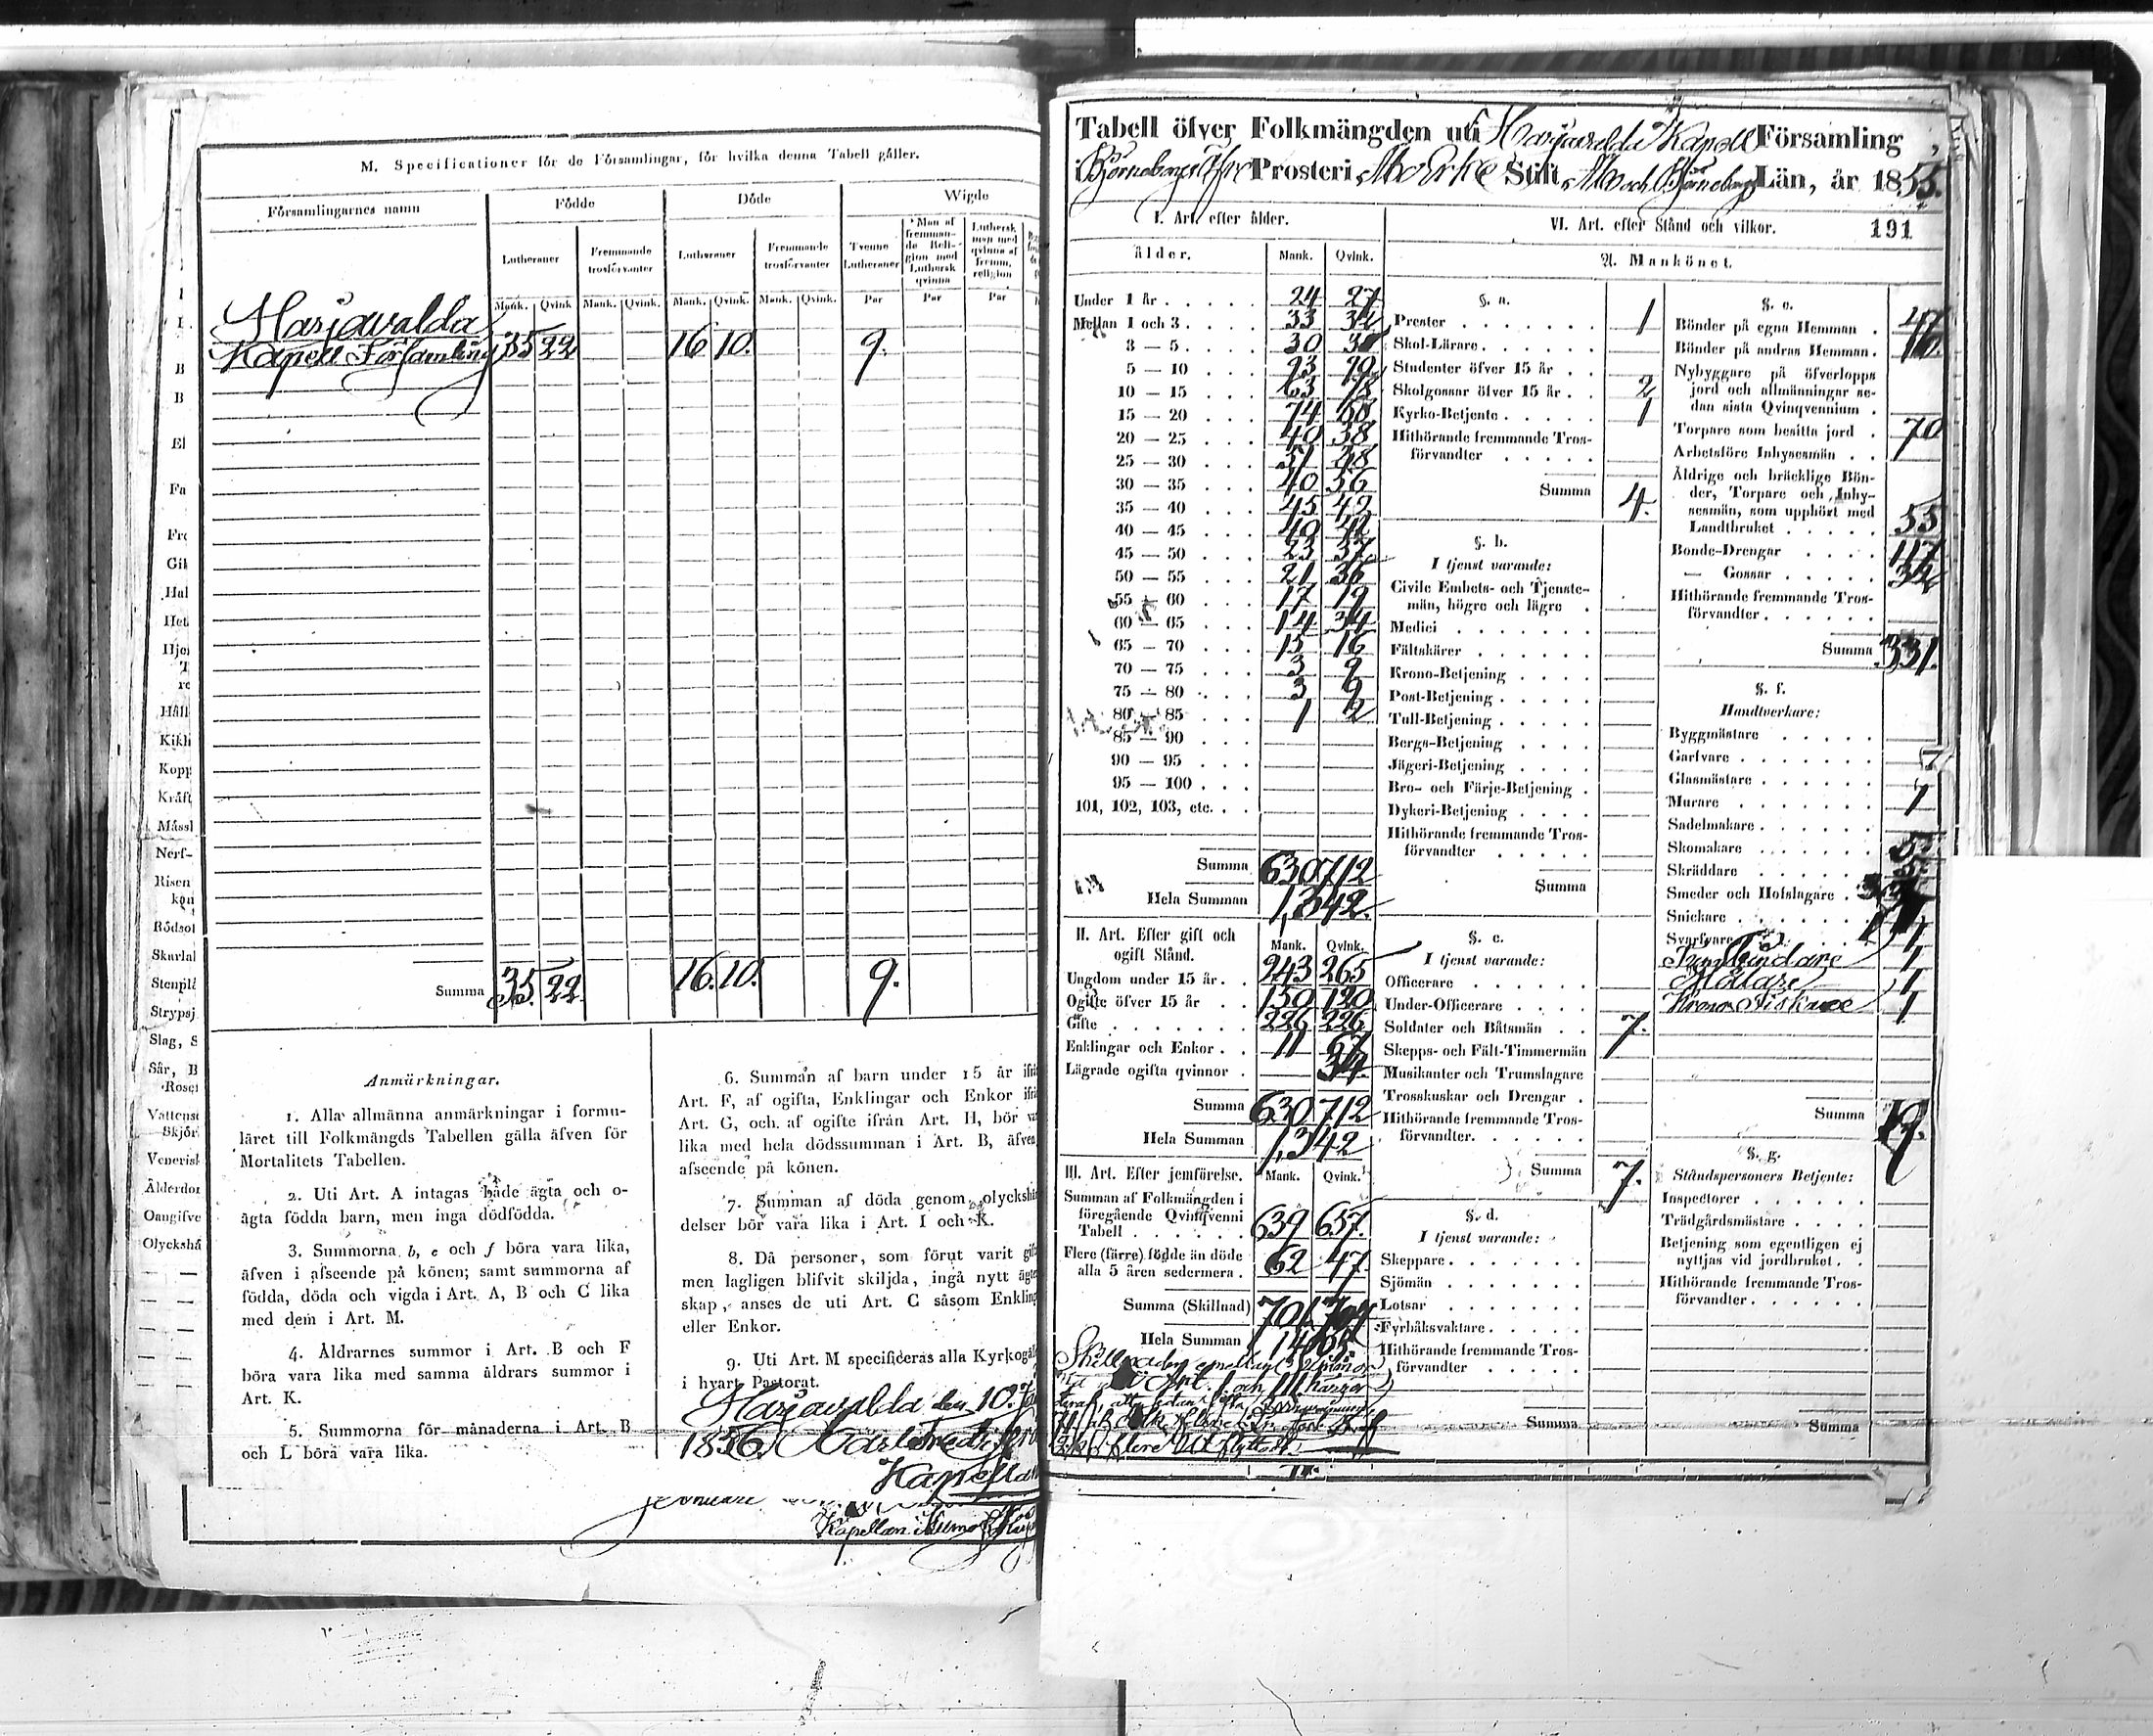 M. Specificationer för de Församlingar, för hvilka denna Tabell gäller.
Församlingarnes namn
Födde
Döde
Wigde
Lutheraner
Fremmande trosförvanter
Lutheraner
Fremmande trosförvanter
Tvenne Lutheraner
Man af fremmande Religion med Luthersk qvinna
Luthersk man med qvinna af fremm. religion
Mank. Qvink. Mank. Qvink. Mank. Qvink. Mank. Qvink. Par Par Par
Harjavalda
Kapell Församling 35 22 16 10. 9.
Summa 35. 22. 16. 10. 9.
Anmärkningar.
1. Alla allmänna anmärkningar i formu-
läret till Folkmängds Tabellen gälla äfven för
Mortalitets Tabellen.
2. Uti Art. A intagas både ägta och o-
ägta födda barn, men inga dödfödda.
3. Summorna b, e och f böra vara lika,
äfven i afseende på könen; samt summorna af
födda, döda och vigda i Art. A, B och C lika
med dem i Art. M.
4. Åldrarnes summor i Art. B och F
böra vara lika med samma åldrars summor i
Art. K.
5. Summorna för månaderna i Art. B
och L böra vara lika.
6. Summan af barn under 15 år ifrå
Art. F, af ogifta, Enklingar och Enkor ifrå
Art. G, och af ogifte ifrån Art. H, bör va
lika med hela dödssumman i Art. B, äfven
afseende på könen.
7. Summan af döda genom olyckshän
delser bör vara lika i Art. I och K.
8. Då personer, som förut varit gif
men lagligen blifvit skiljda, ingå nytt ägte
skap, anses de uti Art. C såsom Enkling
eller Enkor.
9. Uti Art. M specificeras alla Kyrkogäl
i hvart Pastorat.
Harjavalda den 10.
1856. Carl Fredr
Kapellan
Kapellan i Kumo
Tabell öfver Folkmängden uti Harjavalda Kapell Församling,
i Björneborgs Öfre Prosteri, Åbo Erke Stift, Åbo och Björneborgs Län, år 1855.
191
I. Art. efter ålder.
Ålder. Mank. Qvink.
Under 1 år 24 27
Mellan 1 och 3 33 34
3 — 5 30 38
5 — 10 93 79
10 — 15 63 78
15 — 20 74 68
20 — 25 40 38
25 — 30 51 48
30 — 35 40 56
35 — 40 45 42
40 — 45 40 42
45 — 50 23 37
50 — 55 21 36
55 — 60 17 19
60 — 65 14 34
65 — 70 15 16
70 — 75 3 9
75 — 80 3 9
80 — 85 1 2
85 — 90
90 — 95
95 — 100
101, 102, 103, etc.
Summa 630 712
Hela Summan 1,342.
II. Art. Efter gift och
ogift Stånd. Mank. Qvink.
Ungdom under 15 år 243 265
Ogifte öfver 15 år 150 120
Gifte 226 226
Enklingar och Enkor 11 67
Lägrade ogifta qvinnor 34.
Summa 630 712
Hela Summan 1,342
III. Art. Efter jemförelse. Mank. Qvink.
Summan af Folkmängden i
föregående Qvinqvenni
Tabell 639 657.
Flere (färre) födde än döde
alla 5 åren sedermera 62 47.
Summa (Skillnad) 701 704
Hela Summan 1405.
Skillnaden emellan Summor
na i Art. I och III härrör
VI. Art. efter Stånd och vilkor.
A. Mankönet.
§. a.
Prester 1
Skol-Lärare
Studenter öfver 15 år
Skolgossar öfver 15 år 2
Kyrko-Betjente 1
Hithörande fremmande Tros-
förvandter
Summa 4.
§. b.
I tjenst varande:
Civile Embets- och Tjenste-
män, högre och lägre
Medici
Fältskärer
Krono-Betjening
Post-Betjening
Tull-Betjening
Bergs-Betjening
Jägeri-Betjening
Bro- och Färje-Betjening
Dykeri-Betjening
Hithörande fremmande Tros-
förvandter
Summa
§. c.
I tjenst varande:
Officerare
Under-Officerare
Soldater och Båtsmän 7.
Skepps- och Fält-Timmermän
Musikanter och Trumslagare
Trosskuskar och Drengar
Hithörande fremmande Tros-
förvandter
Summa 7.
§. d.
I tjenst varande:
Skeppare
Sjömän
Lotsar
Fyrbåksvaktare
Hithörande fremmande Tros-
förvandter
Summa
§. e.
Bönder på egna Hemman 47
Bönder på andras Hemman
Nybyggare på öfverlopps
jord och allmänningar se-
dan sista Qvinqvennium
Torpare som besitta jord 70
Arbetsföre Inhysesmän
Åldrige och bräcklige Bön-
der, Torpare och Inhy-
sesmän, som upphört med
Landtbruket 55
Bonde-Drengar 117
— Gossar
Hithörande fremmande Tros-
förvandter
Summa 331.
§. f.
Handtverkare:
Byggmästare
Garfvare
Glasmästare
Murare 1
Sadelmakare
Skomakare 5
Skräddare 5
Smeder och Hofslagare
Snickare
Svarfvare 1
1
Möllare 1
Krono Fiskare 1
Summa 19.
§. g.
Ståndspersoners Betjente:
Inspectorer
Trädgårdsmästare
Betjening som egentligen ej
nyttjas vid jordbruket
Hithörande fremmande Tros-
förvandter
Summa